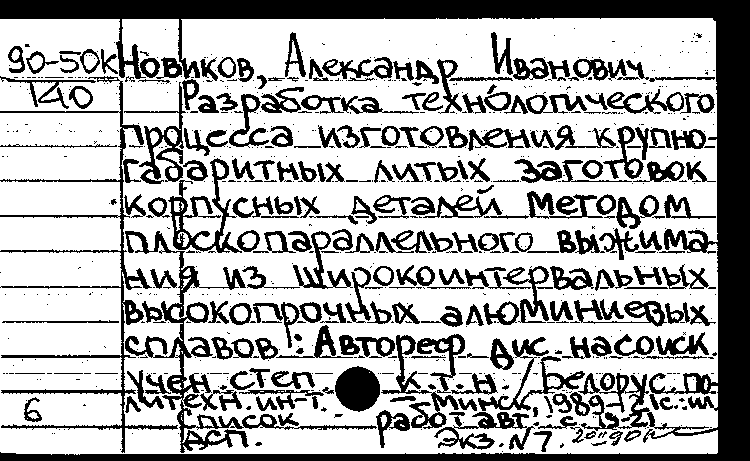 90-50к Новиков, Александр Иванович.
140 Разработка технологического
процесса изготовления крупно-
габаритных литых заготовок
корпусных деталей методом
плоскопараллельного выжима-
ния из широкоинтервальных
высокопрочных алюминиевых
сплавов : Автореф. дис. на соиск.
учен. степ. к.т.н. / Белорус. по-
литехн. ин-т. - Минск, 1989. - 21с.: ил.
6 Список работ авт.: с. 19-21.
ДСП. Экз. N 7.